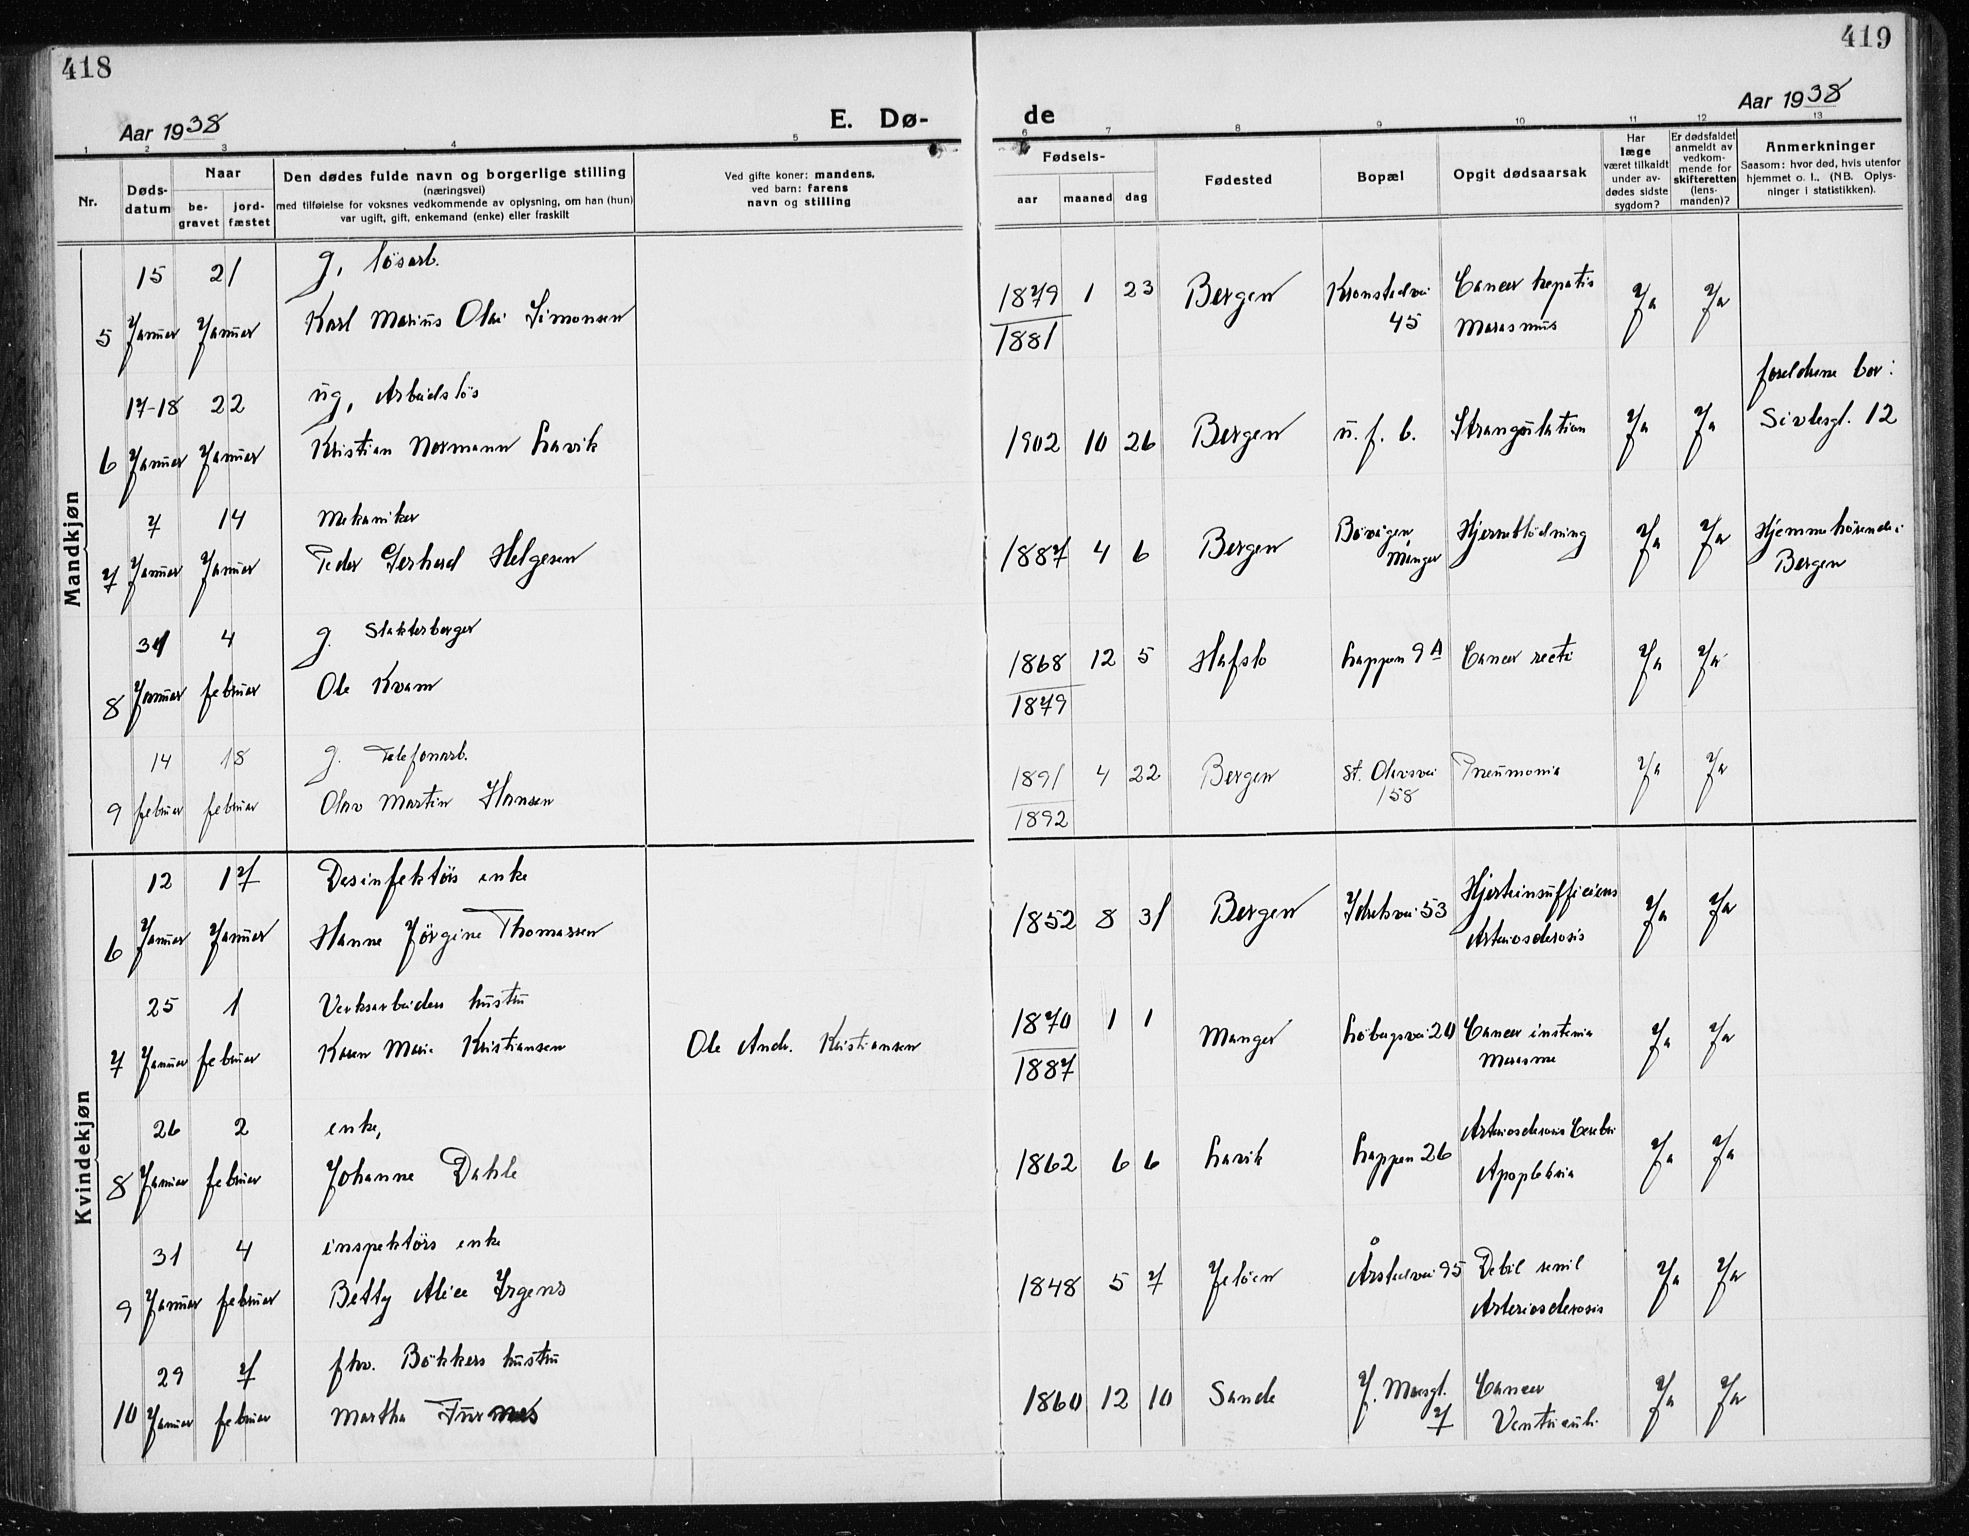 418
419
Aar 1938
E. Dø-
de
Aar 1938
1 2 3 4 5 6 7 8 9 10 11 12 13
Nr.
Døds-
datum
Naar
be-
gravet
jord-
fæstet
Den dødes fulde navn og borgerlige stilling
(næringsvei)
med tilføielse for voksnes vedkommende av oplysning, om han (hun)
var ugift, gift, enkemand (enke) eller fraskilt
Ved gifte koner: mandens,
ved barn: farens
navn og stilling
Fødsels-
aar maaned dag
Fødested
Bopæl
Opgit dødsaarsak
Har
læge
været tilkaldt
under av-
dødes sidste
sygdom?
Er dødsfaldet
anmeldt av
vedkom-
mende for
skifteretten
(lens-
manden)?
Anmerkninger
Saasom: hvor død, hvis utenfor
hjemmet o. l., (NB. Oplys-
ninger i statistikken).
Mandkjøn
15 21 g, løsarb.
5 Januar Januar Karl Marius Olai Simonsen
1879 1 23 Bergen Kronstadvei Cancer hepatis Ja Ja
1881 45 Marasmus
17-18 22 ug, Arbeidsløs
6 Januar Januar Kristian Normann Lavik
1902 10 26 Bergen u. f. b. Strangulation Ja Ja
foreldrene bor:
Sivlesgt. 12
7 14 Mekaniker
7 Januar Januar Peder Gerhard Helgesen
1887 4 6 Bergen Bøvågen Hjerneblødning Ja Ja
Manger
Hjemmehørende i
Bergen
31 4 g. Slakterborger
8 Januar februar Ole Kvam
1868 12 5 Hafslo Lappen 9A Cancer recti Ja Ja
1879
14 18 g. Telefonarb.
9 februar februar Olav Martin Hansen
1891 4 22 Bergen St. Olavsvei Pneumonia Ja Ja
1892 158
Kvindekjøn
12 17 Desinfektørs enke
6 Januar Januar Hanne Jørgine Thomassen
1852 8 31 Bergen Idretsvei 53 Hjerteinsufficiens Ja Ja
Arteriosclerosis
25 1 Verksarbeiders hustru
7 Januar februar Karen Marie Kristiansen Ole Andr. Kristiansen
1870 1 1 Manger Løbergsvei 20 Cancer Ja Ja
1887
26 2 enke,
8 Januar februar Johanne Dahle
1862 6 6 Lavik Lappen 26 Arteriosclerosis Cerebri Ja Ja
31 4 inspektørs enke
9 Januar februar Betty Alice Irgens
1848 5 7 Jeløen Årstadvei 95 Debil senil Ja Ja
Arteriosclerosis
29 7 fhv. Bøkkers hustru
10 Januar februar Martha Furnes
1860 12 10 Sande Cancer Ja Ja
7 Ventriculi